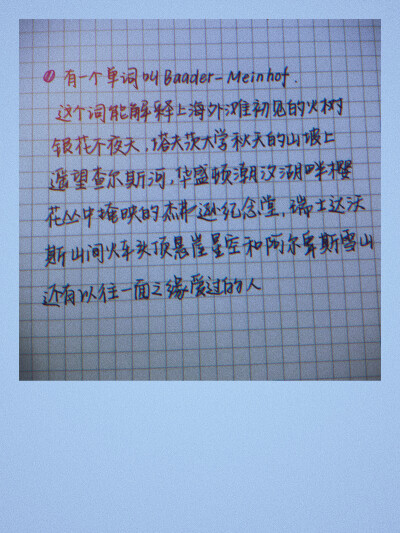 ① 有一个单词叫Baader-Meinhof.
这个词能解释上海外滩初见的火树
银花不夜天,塔夫茨大学秋天的山坡上
遥望查尔斯河,华盛顿潮汐湖畔樱
花丛中掩映的杰弗逊纪念堂,瑞士达沃
斯山间火车头顶悬崖星空和阿尔卑斯雪山
还有以往一面之缘爱过的人